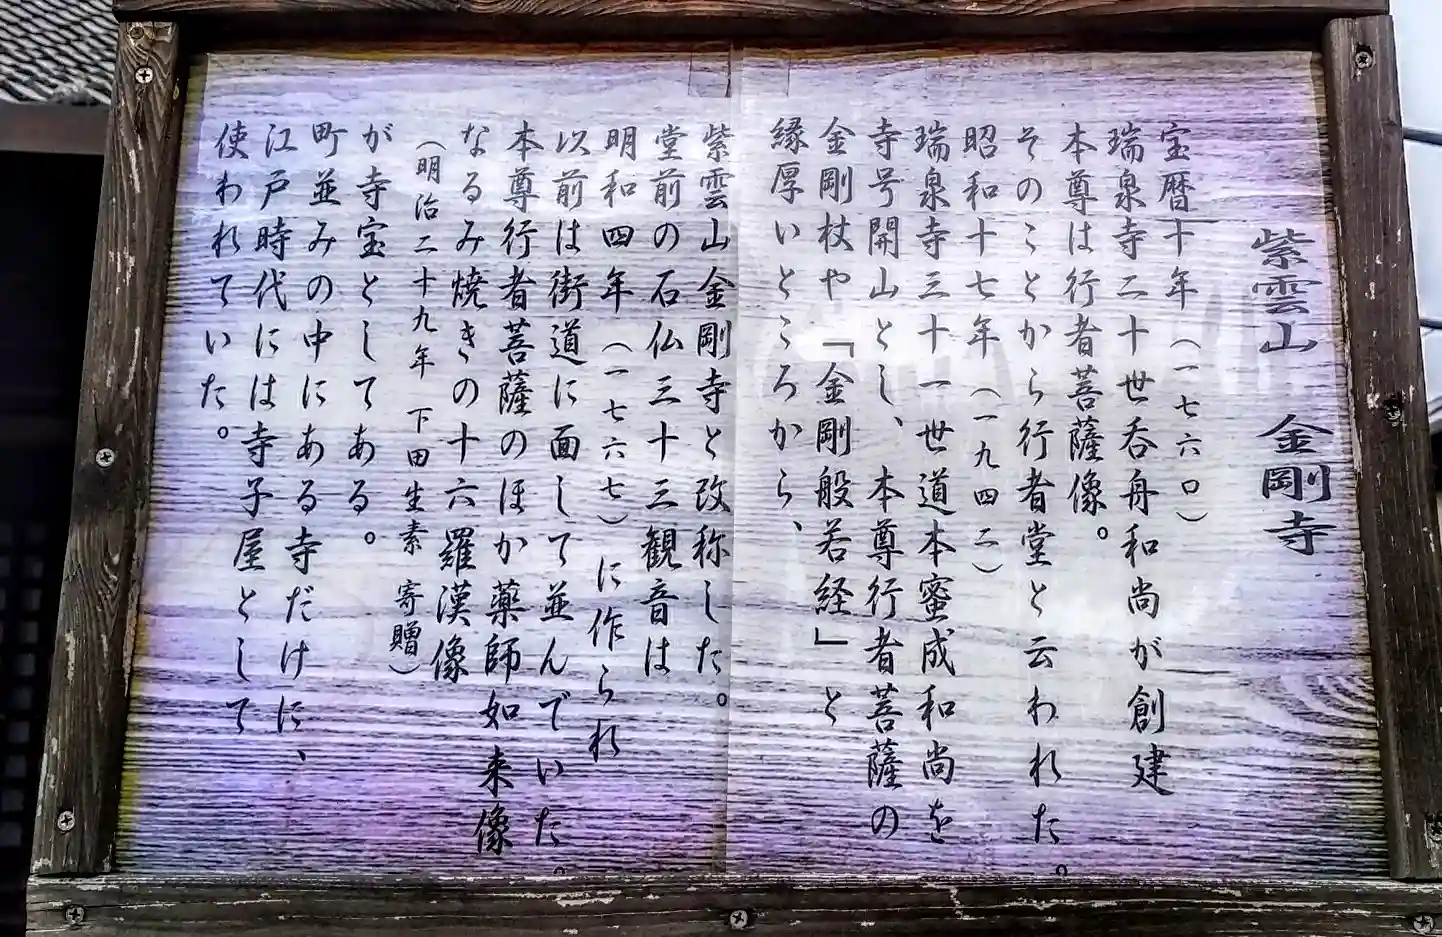 紫雲山 金剛寺
宝暦十年（一七六〇）
瑞泉寺二十世呑舟和尚が創建
本尊は行者菩薩像。
そのことから行者堂と云われた。
昭和十七年（一九四二）
瑞泉寺三十一世道本蜜成和尚を
寺号開山とし、本尊行者菩薩の
金剛杖や「金剛般若経」と
縁厚いところから、
紫雲山金剛寺と改称した。
堂前の石仏三十三観音は
明和四年（一七六七）に作られ
以前は街道に面して並んでいた。
本尊行者菩薩のほか薬師如来像
なるみ焼きの十六羅漢像
（明治二十九年 下田生素 寄贈）
が寺宝としてある。
町並みの中にある寺だけに、
江戸時代には寺子屋として
使われていた。